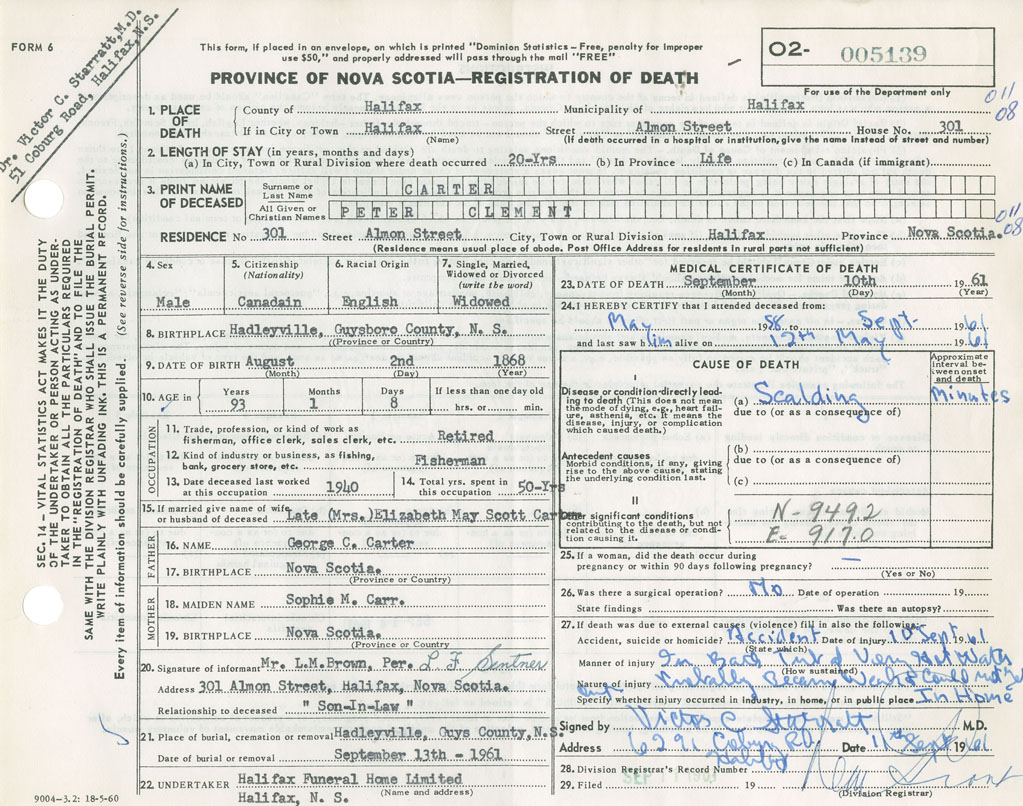 FORM 6
Dr. Victor C. Starratt, M.D.
51 Coburg Road, Halifax, N.S.
This form, if placed in an envelope, on which is printed "Dominion Statistics – Free, penalty for improper
use $50," and properly addressed will pass through the mail "FREE"
PROVINCE OF NOVA SCOTIA—REGISTRATION OF DEATH
O2- 005139
For use of the Department only
011
08
1. PLACE OF DEATH County of Halifax Municipality of Halifax
If in City or Town Halifax Street Almon Street House No. 301
(Name) (If death occurred in a hospital or institution, give the name instead of street and number)
2. LENGTH OF STAY (in years, months and days)
(a) In City, Town or Rural Division where death occurred 20-Yrs (b) In Province Life (c) In Canada (if immigrant)
3. PRINT NAME OF DECEASED Surname or Last Name CARTER
All Given or Christian Names PETER CLEMENT
011
08
RESIDENCE No 301 Street Almon Street City, Town or Rural Division Halifax Province Nova Scotia.
(Residence means usual place of abode. Post Office Address for residents in rural parts not sufficient)
4. Sex Male
5. Citizenship (Nationality) Canadain
6. Racial Origin English
7. Single, Married, Widowed or Divorced (write the word) Widowed
8. BIRTHPLACE Hadleyville, Guysboro County, N. S.
(Province or Country)
9. DATE OF BIRTH August 2nd 1868
(Month) (Day) (Year)
10. AGE in Years 93 Months 1 Days 8 If less than one day old hrs. or min.
OCCUPATION
11. Trade, profession, or kind of work as fisherman, office clerk, sales clerk, etc. Retired
12. Kind of industry or business, as fishing, bank, grocery store, etc. Fisherman
13. Date deceased last worked at this occupation 1940
14. Total yrs. spent in this occupation 50-Yrs
15. If married give name of wife or husband of deceased Late (Mrs.) Elizabeth May Scott Carter
FATHER
16. NAME George C. Carter
17. BIRTHPLACE Nova Scotia.
(Province or Country)
MOTHER
18. MAIDEN NAME Sophie M. Carr.
19. BIRTHPLACE Nova Scotia.
(Province or Country
20. Signature of informant Mr. L.M.Brown, Per. L F
Address 301 Almon Street, Halifax, Nova Scotia.
Relationship to deceased " Son-In-Law "
21. Place of burial, cremation or removal Hadleyville, Guys County, N.S.
Date of burial or removal September 13th - 1961
22. UNDERTAKER Halifax Funeral Home Limited
Halifax, N. S. (Name and address)
MEDICAL CERTIFICATE OF DEATH
23. DATE OF DEATH September 10th 19 61
(Month) (Day) (Year)
24. I HEREBY CERTIFY that I attended deceased from:
May 1958 to Sept. 1961
and last saw him alive on 12th May 1961
CAUSE OF DEATH
Approximate interval between onset and death
I
Disease or condition directly leading to death (This does not mean the mode of dying, e.g., heart failure, asthma, etc. It means the disease, injury, or complication which caused death.)
(a) Scalding minutes
due to (or as a consequence of)
Antecedent causes
Morbid conditions, if any, giving rise to the above cause, stating the underlying condition last.
(b)
due to (or as a consequence of)
(c)
II
Other significant conditions
contributing to the death, but not related to the disease or condition causing it.
N-9492
E-917.0
25. If a woman, did the death occur during
pregnancy or within 90 days following pregnancy? —
(Yes or No)
26. Was there a surgical operation? No Date of operation 19
State findings Was there an autopsy?
27. If death was due to external causes (violence) fill in also the following:
Accident, suicide or homicide? Accident Date of injury 10 Sept 1961
(State which)
Manner of injury In Bath Tub of Very Hot Water
(How sustained)
Nature of injury Probably Became Weak & Could not get out
Specify whether injury occurred in industry, in home, or in public place In Home
Signed by Victor C Starratt M.D.
Address 6291 Coburg Rd. Halifax Date 11th Sept 1961
28. Division Registrar's Record Number
29. Filed SEP 11 1961 19
(Division Registrar)
SEC. 14 – VITAL STATISTICS ACT MAKES IT THE DUTY
OF THE UNDERTAKER OR PERSON ACTING AS UNDER-
TAKER TO OBTAIN ALL THE PARTICULARS REQUIRED
IN THE "REGISTRATION OF DEATH" AND TO FILE THE
SAME WITH THE DIVISION REGISTRAR WHO SHALL ISSUE THE BURIAL PERMIT.
WRITE PLAINLY WITH UNFADING INK. THIS IS A PERMANENT RECORD.
Every item of information should be carefully supplied. (See reverse side for instructions.)
9004-3.2: 18-5-60